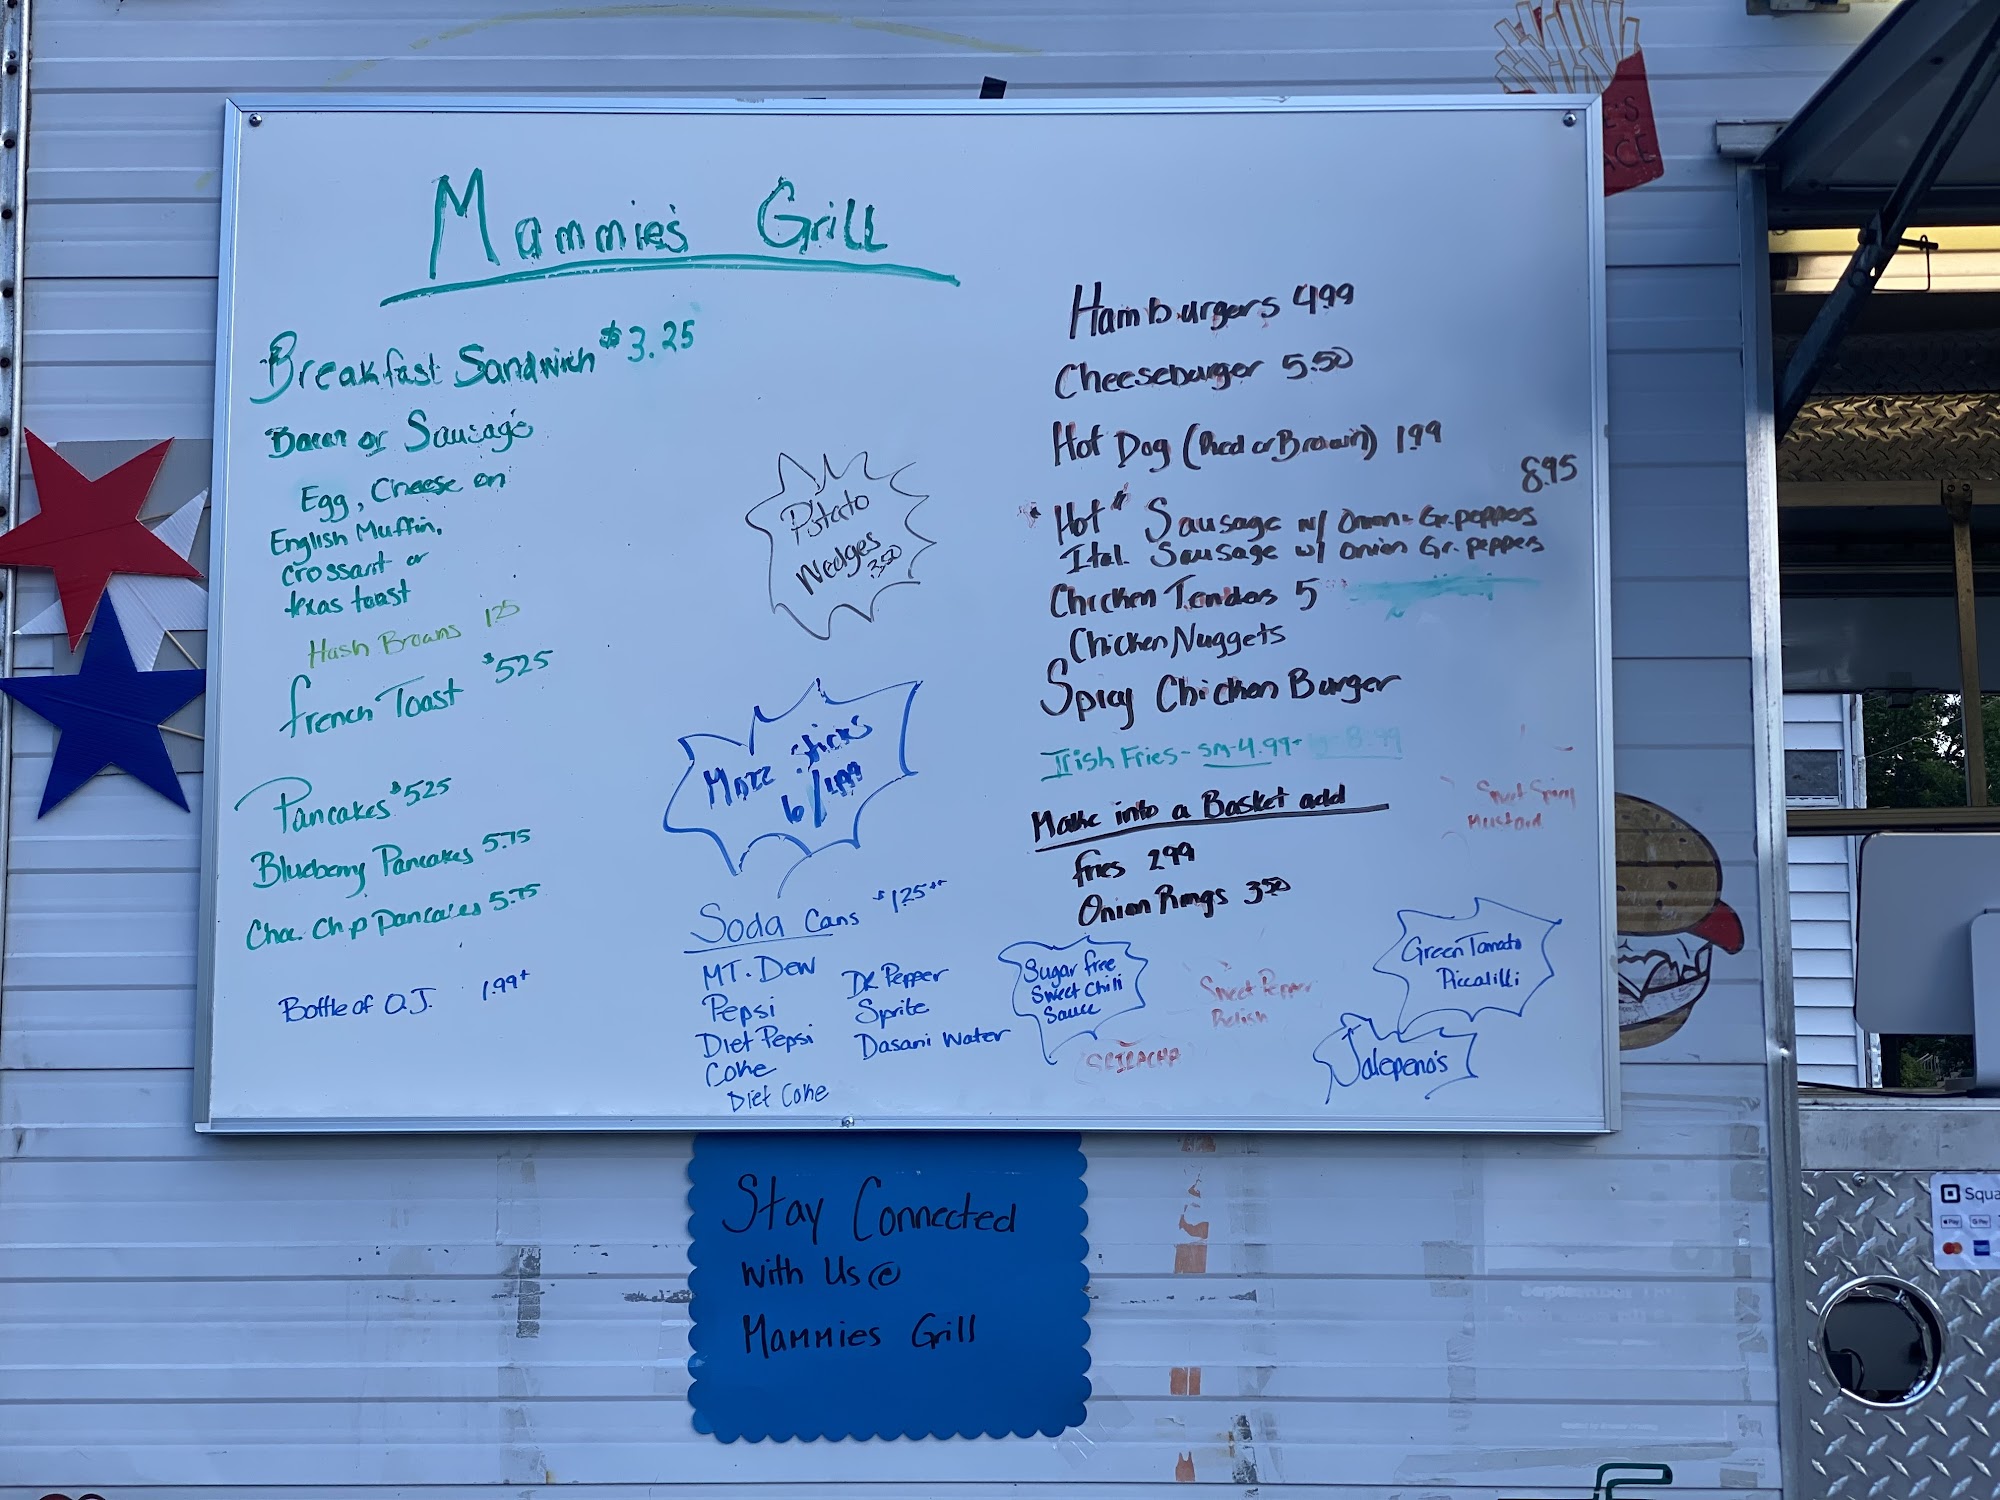 Mammie's Grill
Breakfast Sandwich $3.25
Bacon or Sausage
Egg, Cheese on
English Muffin,
crossant or
texas toast
Hash Browns 125
french Toast $525
Pancakes $525
Blueberry Pancakes 5.75
Choc. Chip pancakes 5.75
Bottle of O.J. 1.99+
Potato
Wedges
350
Mozz sticks
6/499
Soda Cans $125++
MT. Dew
Pepsi
Diet Pepsi
Coke
Diet Coke
Dr Pepper
Sprite
Dasani Water
Hamburgers 499
Cheeseburger 5.50
Hot Dog (Red or Brown) 199
8.95
"Hot" Sausage w/ Onion Gr. peppers
Ital. Sausage w/ onion Gr. peppers
Chicken Tenders 5
Chicken Nuggets
Spicy Chicken Burger
Irish Fries - sm-4.99+ lg-8.99
Make into a Basket add
fries 299
Onion Rings 350
Sweet Spicy
Mustard
Sugar free
Sweet Chili
Sauce
Sweet Pepper
Relish
SRIRACHA
Green Tomato
Piccalilli
Jalepeno's
Stay Connected
with Us @
Mammies Grill
Squa